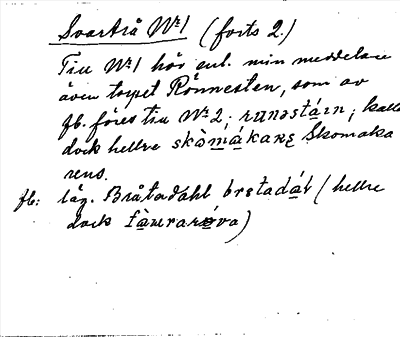 Svartrå Nr 1 (forts 2.)
Till Nr 1 hör enl. min meddelare
även torpet Rönnesten, som av
fb. föres till Nr 2; rønəstá̱in; kall
dock hellre skò̱má̱kaʀȩ Skomaka
rens.
fb: läg. Bråtadahl brȩtadá̱l (hellre
dock